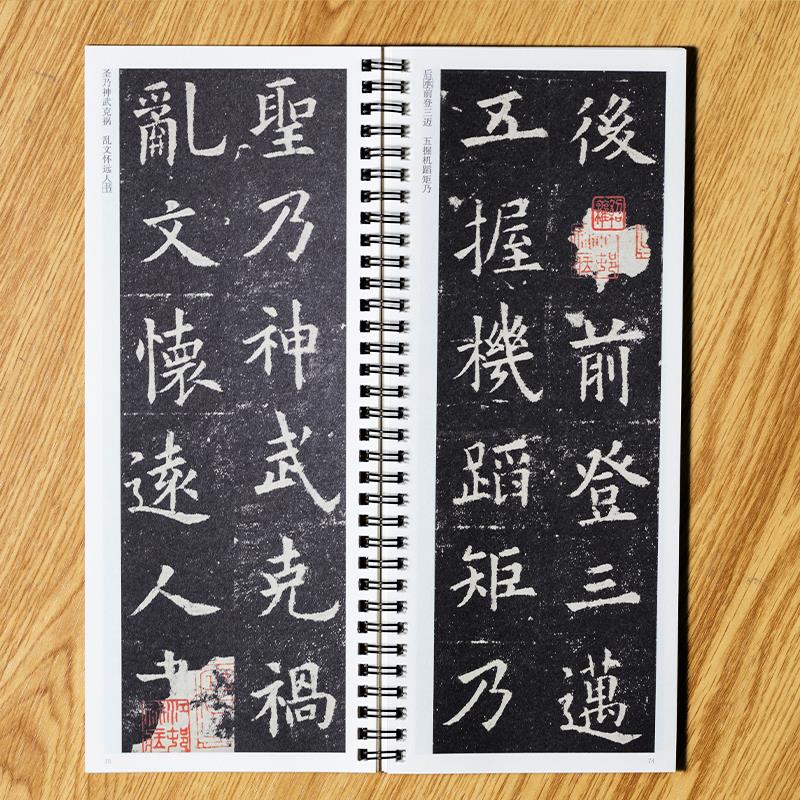 后前登三迈 五握机蹈矩乃
後前登三邁
五握機蹈矩乃
74
圣乃神武克祸 乱文怀远人书
聖乃神武克禍
亂文懷遠人